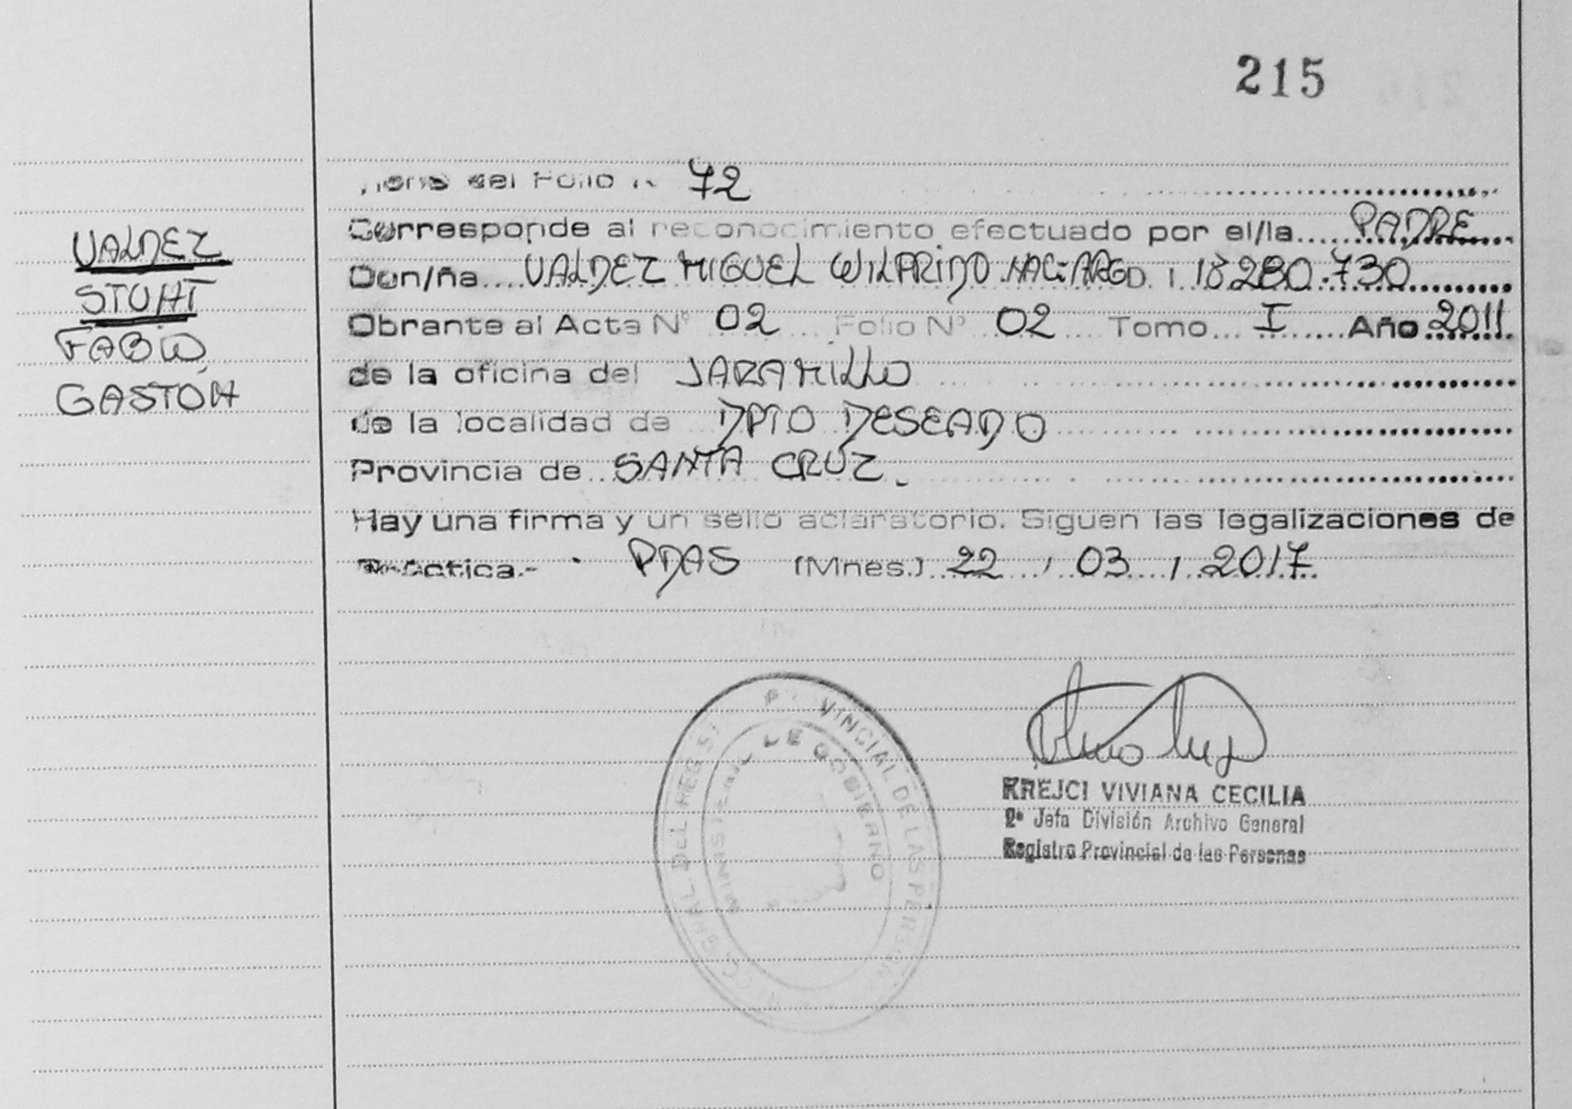 215
del Folio N 72
VALDEZ
STUHT
FABIO
GASTÓN
Corresponde al reconocimiento efectuado por el/la PADRE
Don/ña VALDEZ MIGUEL WILFRIDO NAC: ARG D. I 18.280.730
Obrante al Acta Nº 02 Folio Nº 02 Tomo I Año 2011
de la oficina del JARAMILLO
de la localidad de DPTO DESEADO
Provincia de SANTA CRUZ.
Hay una firma y un sello aclaratorio. Siguen las legalizaciones de
Práctica.- PDAS (Mnes.) 22 / 03 / 2017
PROVINCIAL DE LAS PERSONAS
GRAL DEL REGIST
MINISTERIO DE GOBIERNO
KREJCI VIVIANA CECILIA
2ª Jefa División Archivo General
Registro Provincial de las Personas